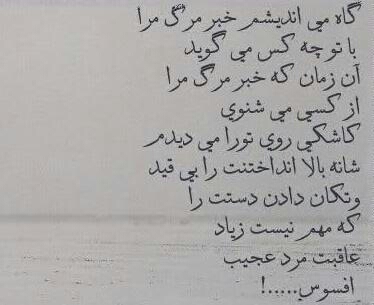 گاه مي انديشم خبر مرگ مرا
با تو چه كس مي گويد
آن زمان كه خبر مرگ مرا
از كسي مي شنوي
كاشكي روي تورا مي ديدم
شانه بالا انداختنت را بي قيد
وتكان دادن دستت را
كه مهم نيست زياد
عاقبت مرد عجيب
افسوس......!